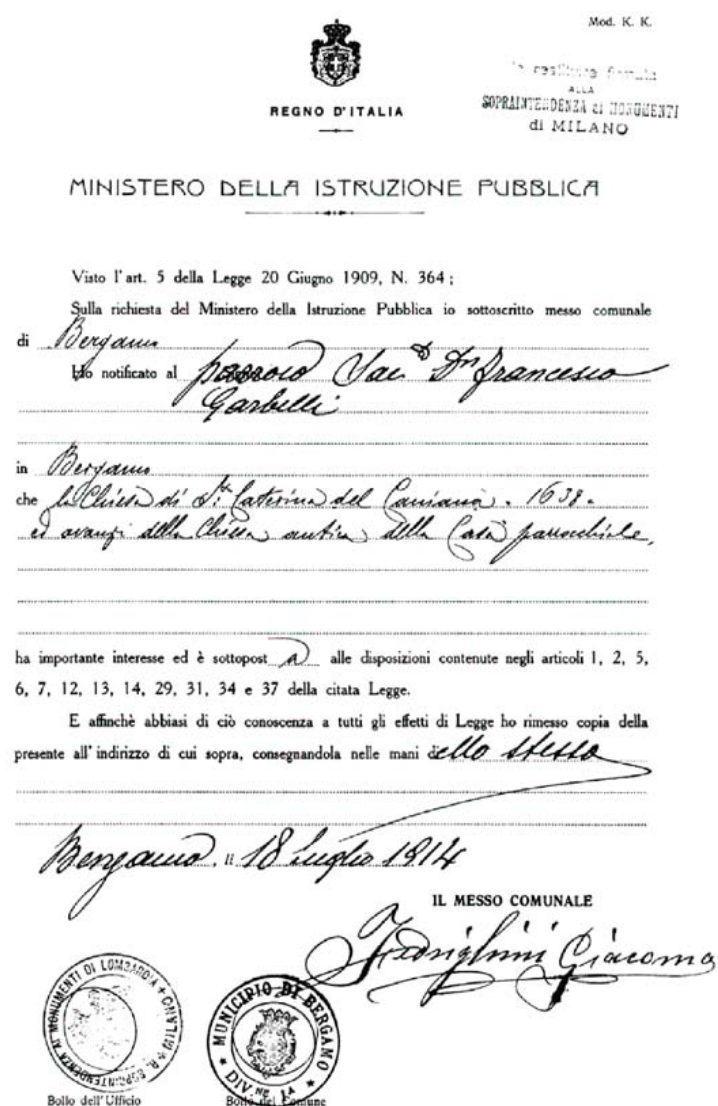 Mod. K. K.
da restituire firmata
ALLA
SOPRAINTENDENZA ai MONUMENTI
di MILANO
REGNO D'ITALIA
MINISTERO DELLA ISTRUZIONE PUBBLICA
Visto l'art. 5 della Legge 20 Giugno 1909, N. 364;
Sulla richiesta del Ministero della Istruzione Pubblica io sottoscritto messo comunale
di Bergamo
Ho notificato al parroco Sac. Dn Francesco
Garbelli
in Bergamo
che la Chiesa di Sta Caterina del Caniana. 1638.
ed avanzi della Chiesa antica della Casa parrocchiale,
ha importante interesse ed è sottopost a alle disposizioni contenute negli articoli 1, 2, 5,
6, 7, 12, 13, 14, 29, 31, 34 e 37 della citata Legge.
E affinchè abbiasi di ciò conoscenza a tutti gli effetti di Legge ho rimesso copia della
presente all'indirizzo di cui sopra, consegnandola nelle mani dello stesso
Bergamo, li 18 Luglio 1914
IL MESSO COMUNALE
Giacomo
R. SOPRINTENDENZA AI MONUMENTI DI LOMBARDIA * MILANO *
MUNICIPIO DI BERGAMO
* DIV.NE 1A *
Bollo dell'Ufficio
Bollo del Comune